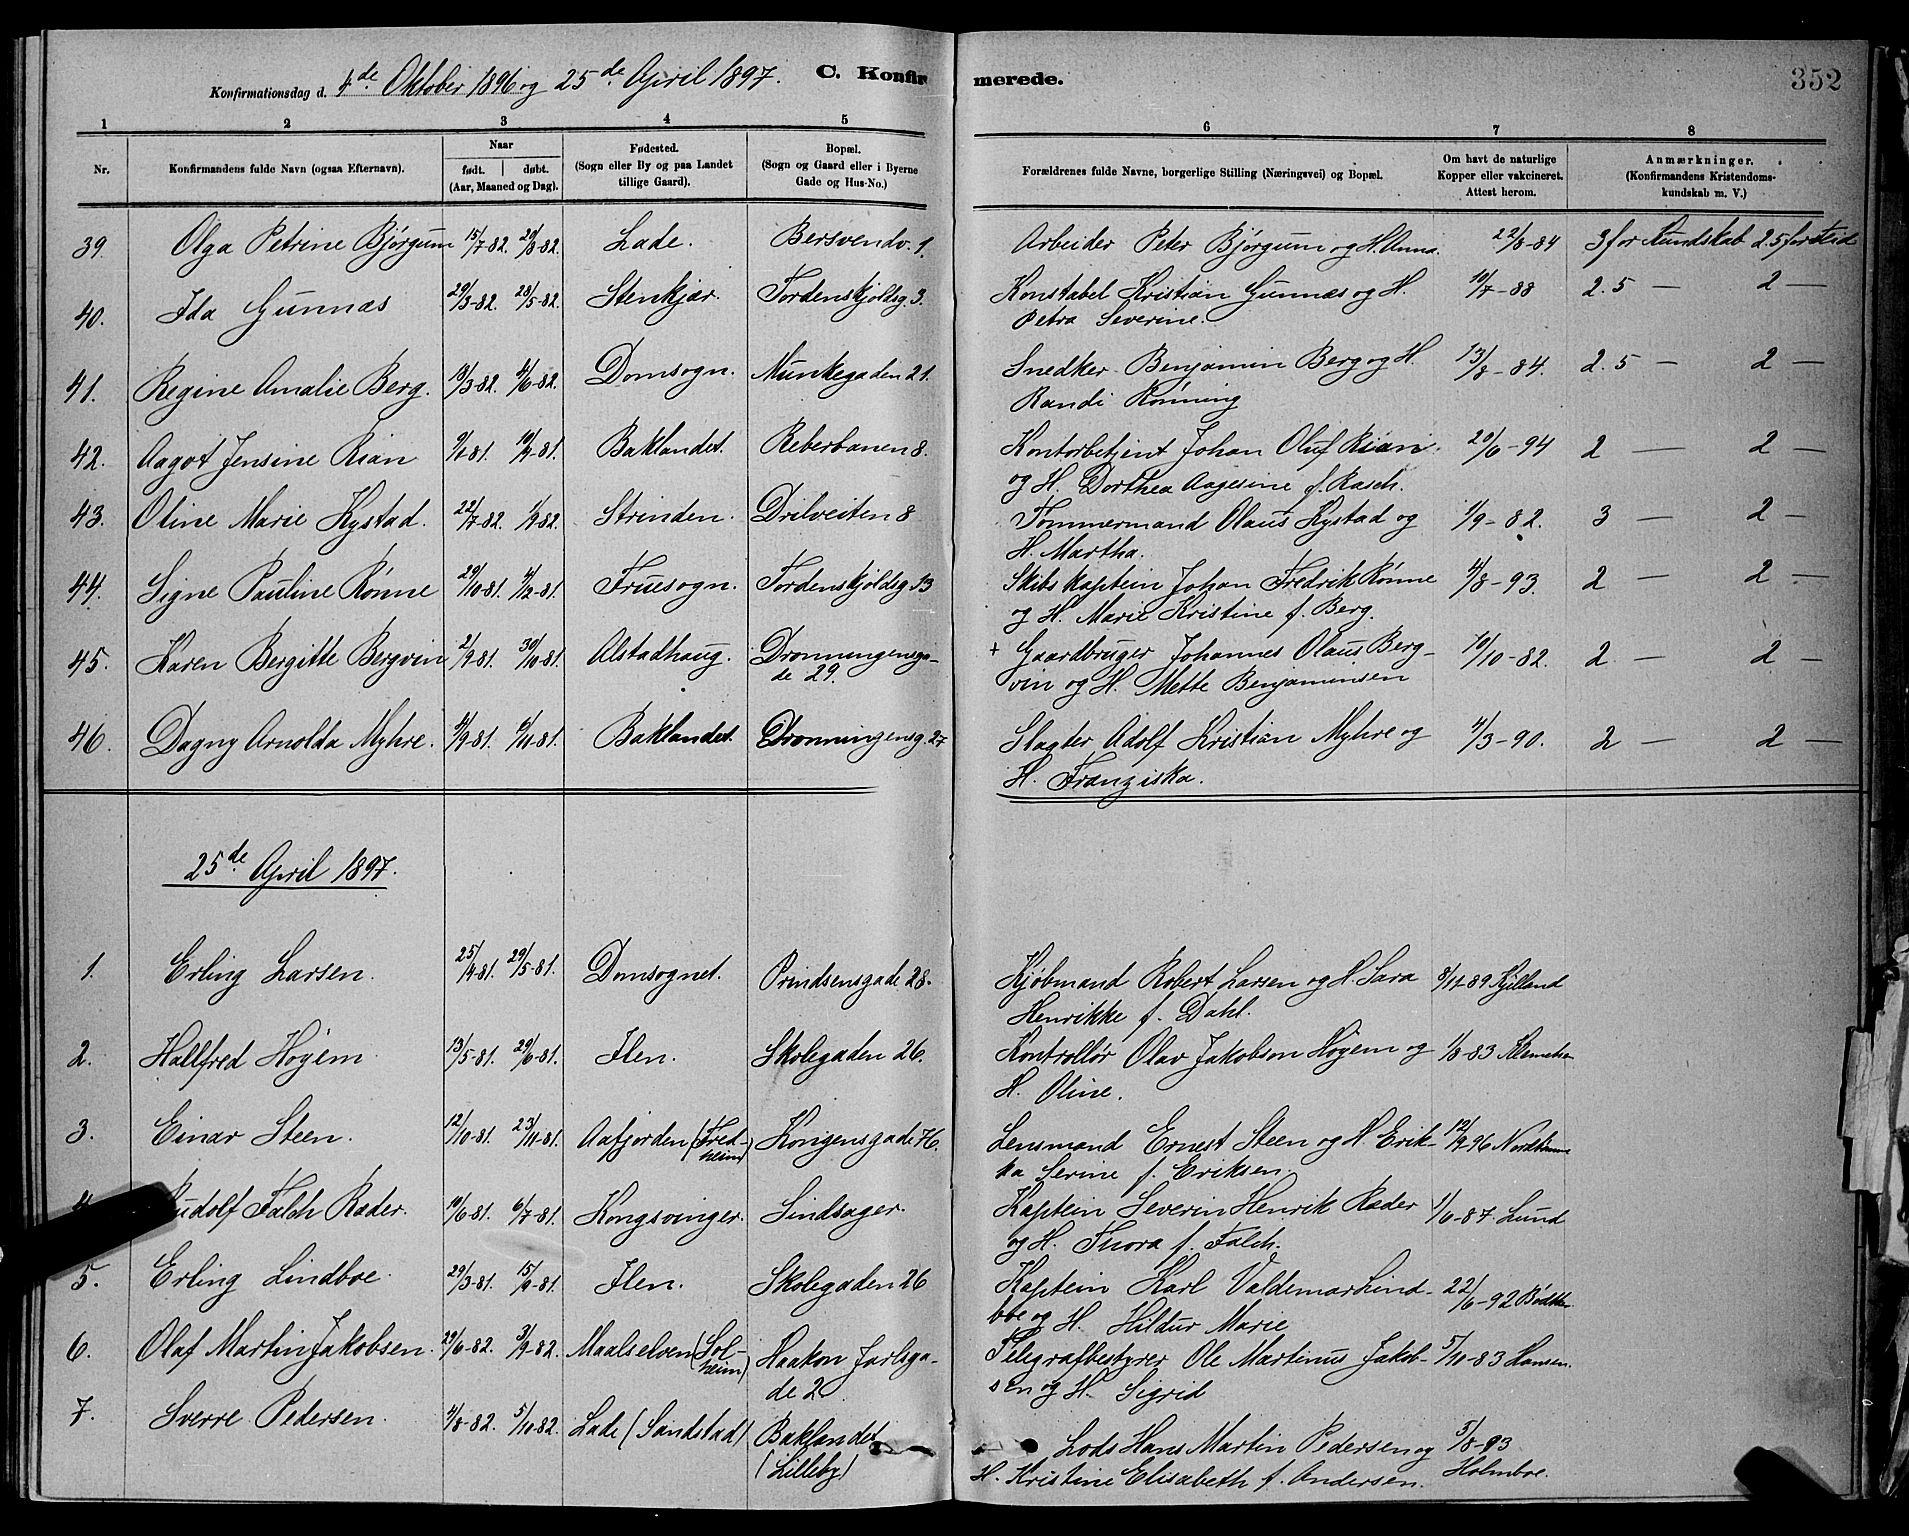 Konfirmationsdag d. 4de Oktober 1896 og 25de April 1897. C. Konfirmerede. 352
1 2 3 4 5 6 7 8
Nr. Konfirmandens fulde Navn (ogsaa Efternavn). Naar født. døbt. (Aar, Maaned og Dag). Fødested. (Sogn eller By og paa Landet tillige Gaard). Bopæl. (Sogn og Gaard eller i Byerne Gade og Hus-No.) Forældrenes fulde Navne, borgerlige Stilling (Næringsvei) og Bopæl. Om havt de naturlige Kopper eller vakcineret. Attest herom. Anmærkninger. (Konfirmandens Kristendomskundskab m. V.)
39. Olga Petrine Bjørgum 15/7-82. 20/8-82. Lade. Bersvendv. 1. Arbeider Peter Bjørgum og H. Anna. 22/8-84 3 for Kundskab 2.5 for Flid
40. Ida Gunnas 29/3-82. 28/5-82. Stenkjær. Tordenskjoldsg. 3. Konstabel Kristian Gunnas og H. 10/7-88 2.5 — 2 —
Petra Severine.
41. Regine Amalie Berg. 13/3-82. 4/6-82. Domsogn. Munkegaden 21. Snedker Benjamin Berg og H. 13/8-84. 2.5 — 2 —
Randi Rønning
42. Aagot Jensine Rian 9/1-81. 10/4-81. Baklandet. Reberbanen 8. Kontorbetjent Johan Oluf Rian 20/6-94 2 — 2 —
og H. Dorthea Aagesine f. Rasch.
43. Oline Marie Kystad. 22/7-82. 1/9-82. Strinden. Drilveiten 8 Tømmermand Olaus Kystad og 1/9-82. 3 — 2 —
H. Martha.
44. Signe Pauline Rønne 29/10-81. 4/12-81. Fruesogn. Tordenskjoldsg. 13 Skibskaptein Johan Fredrik Rønne 4/8-93. 2 — 2 —
og H. Marie Kristine f. Berg.
45. Karen Bergitte Bergvin 2/9-81. 30/10-81. Alstadhaug. Dronningensga- + Gaardbruger Johannes Olaus Berg- 10/10-82. 2 — 2 —
de 29. vin og H. Mette Benjaminsen
46. Dagny Arnolda Myhre. 4/9-81. 6/11-81. Baklandet. Dronningensg. 27 Slagter Adolf Kristian Myhre og 4/3-90. 2 — 2 —
H. Franziska.
25de April 1897.
1. Erling Larsen. 25/4-81. 29/5-81. Domsognet. Prindsensgade 28. Kjøbmand Robert Larsen og H. Sara 8/11-89 Kjelland
Henrikke f. Dahl.
2. Hallfred Høyem 13/5-81. 29/6-81. Ilen. Skolegaden 26. Kontrollør Olav Jakobson Høyem og 1/8-83
H. Oline.
3. Einar Steen. 12/10-81. 23/11-81. Aafjorden (Fred- Kongensgade 76. Lensmand Ernest Steen og H. Erik- 12/9-96
heim) ka Serine f. Eriksen.
4. Rudolf Falch Ræder. 10/6-81. 6/7-81. Kongsvinger. Sindsager. Kaptein Severin Henrik Ræder 1/6-87. Lund
og H. Thora f. Falch.
5. Erling Lindboe. 29/3-81. 15/9-81. Ilen. Skolegaden 26 Kaptein Karl Valdemar Lind- 22/6-92
boe og H. Hildur Marie
6. Olaf Martin Jakobsen. 29/6-82. 3/9-82. Maalselven (Sol- Haakon Jarlsga- Telegrafbestyrer Ole Martinus Jakob- 5/10-83 Hansen.
heim) de 2. sen og H. Sigrid
7. Sverre Pedersen. 4/8-82. 5/10-82. Lade (Sandstad) Baklandet Lods Hans Martin Pedersen og 3/8-93
(Lilleby) H. Kristine Elisabeth f. Andersen. Holmboe.